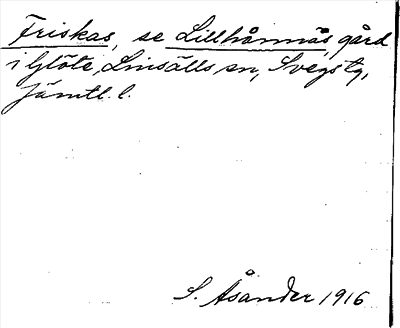 Friskas, se Lillhånnås, gård
i Glöte, Linsälls sn, Svegs tg,
Jämtl. l.
S. Åsander 1916